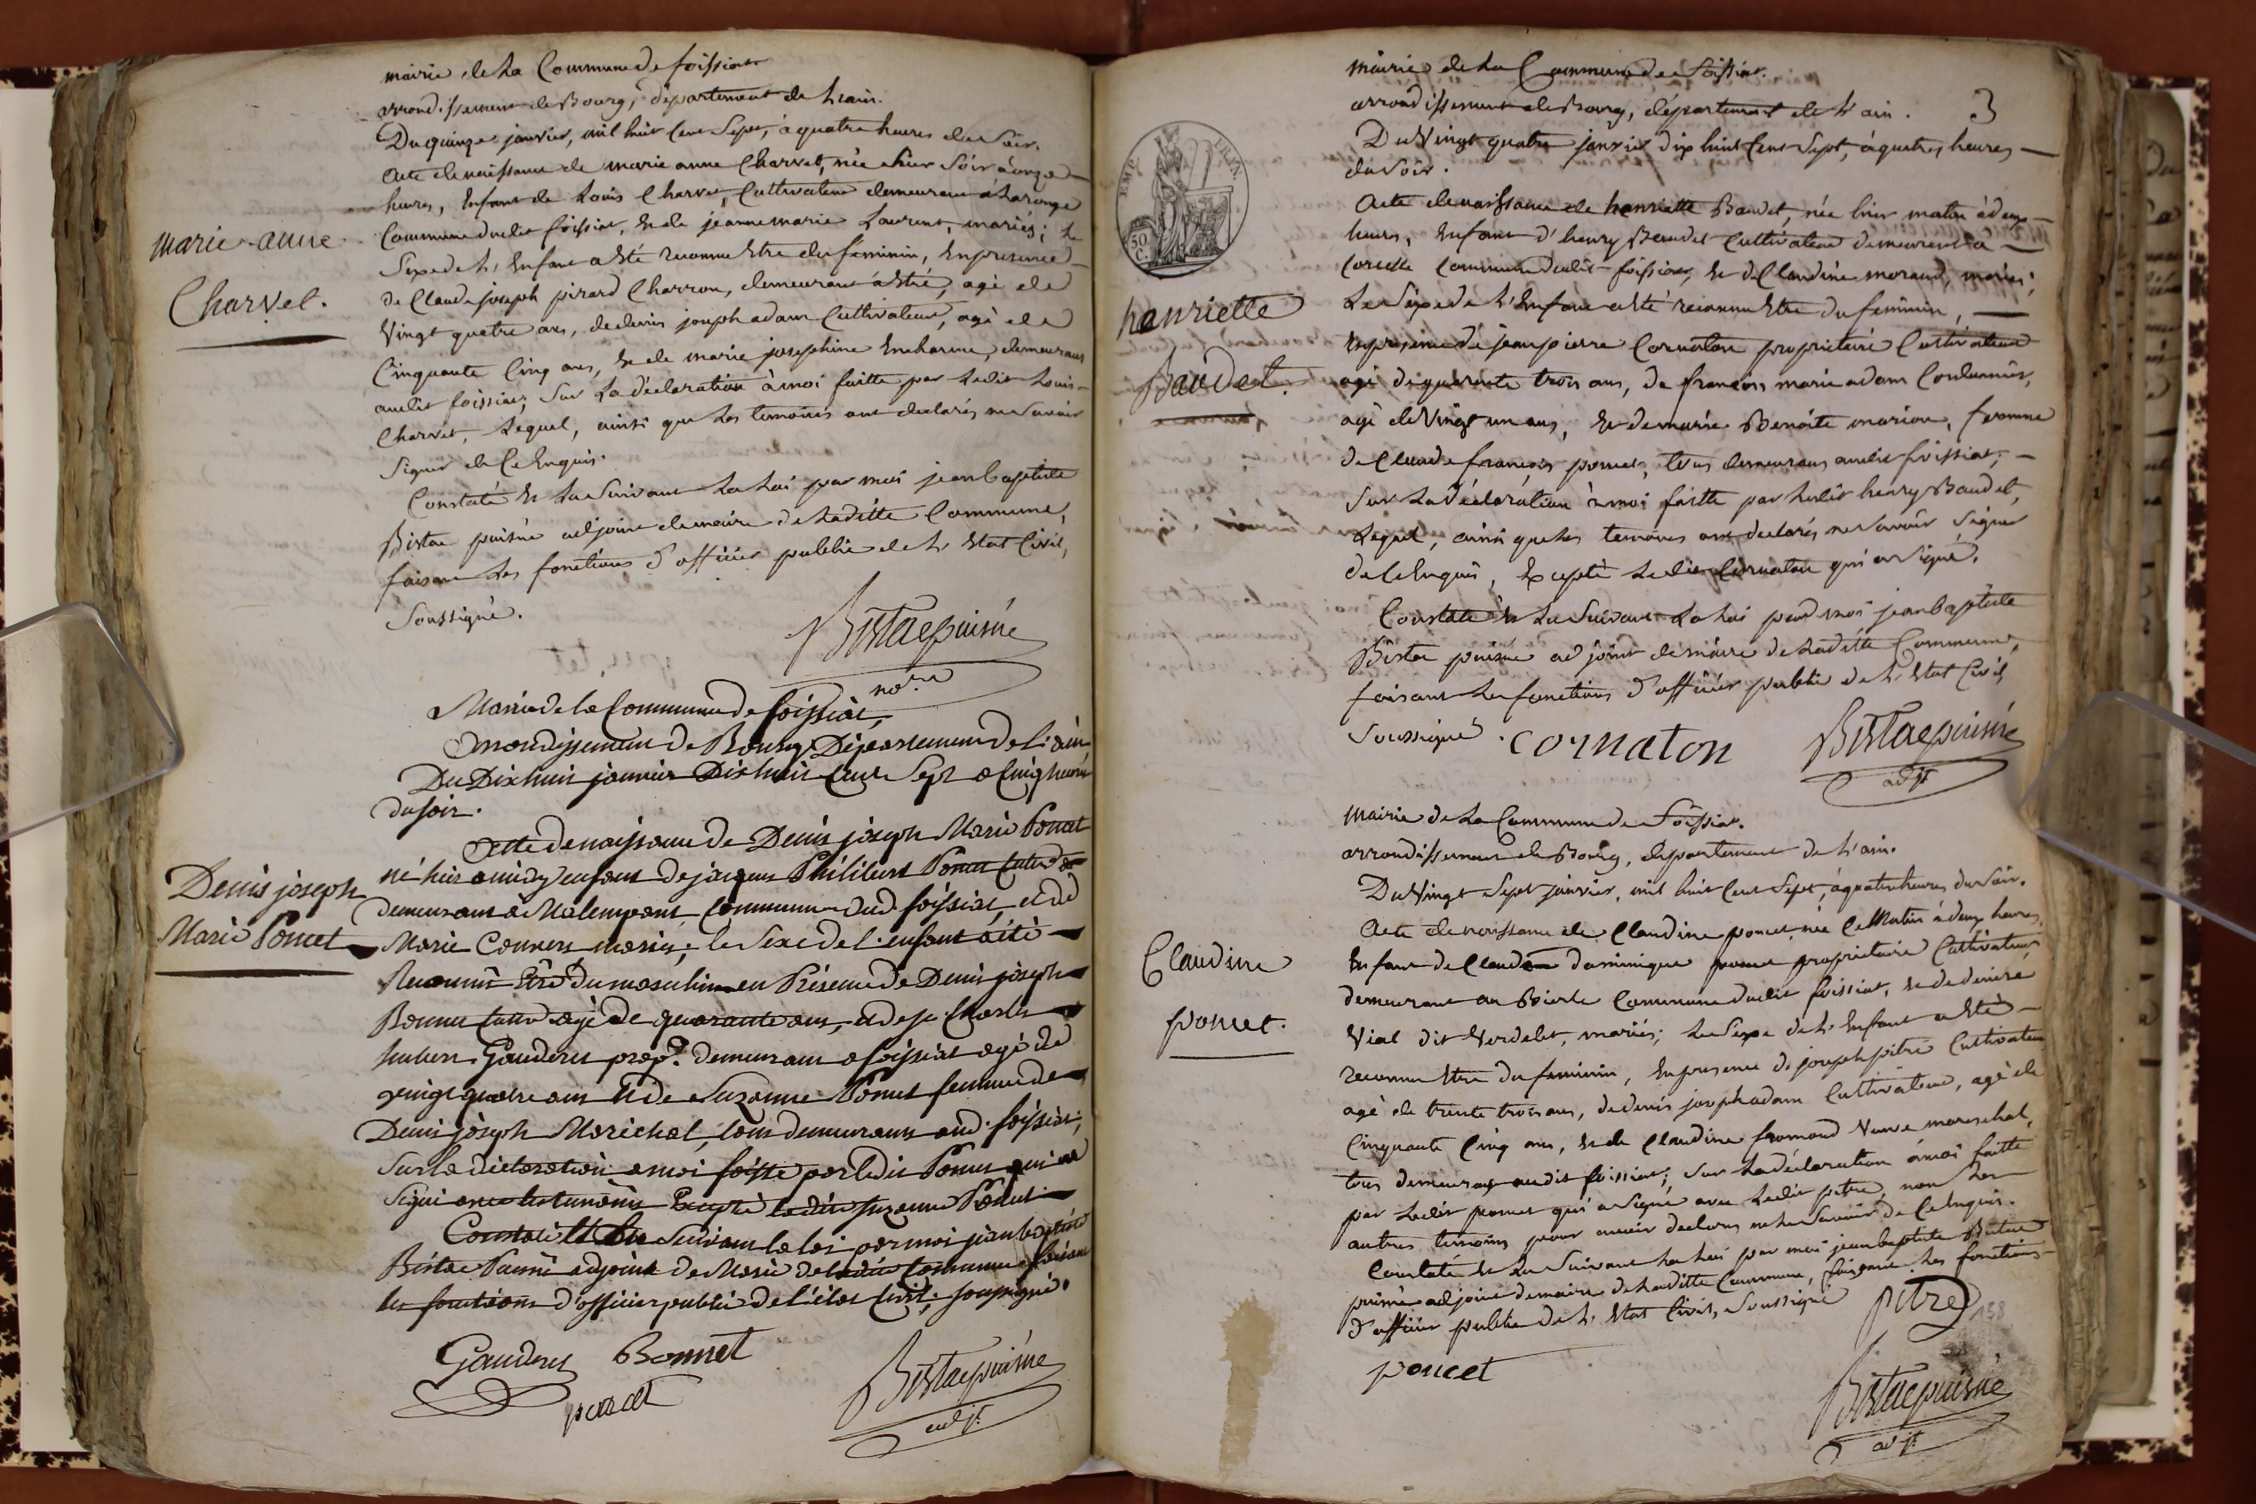 mairie de La Commune de foissiat
arrondissement de Bourg, département de L'ain.
Du quinze janvier, mil huit Cent Sept, à quatre heures du Soir.
Acte de naissance de marie anne Charvet, née hier Soir à onze
heures, Enfant de Louis Charvet, Cultivateur demeurant à
Commune dudit foissiat, Et de jeanne marie Laurent, mariés; Le
Sexe de L'Enfant a Eté reconnu Etre du feminin, En presence
de Claude joseph pirard Charron, demeurant à Etré, agé de
Vingt quatre ans, de denis joseph adam Cultivateur, agé de
Cinquante Cinq ans, Et de marie josephine demeurans
audit foissiat, Sur La déclaration à moi faitte par Ledit Louis
Charvet, Lequel, ainsi que Les temoins ont declarés ne Savoir
Signer de Ce Enquis.
Constaté Et Lu Suivant La Loi par moi jean baptiste
Bistac puisné adjoint de maire de Laditte Commune,
faisant Les fonctions d'officier public de L'Etat Civil,
Soussigné.
Bistac puisné
marie anne
Charvet.
Mairie de la Commune de foissiat,
Arrondissement de Bourg, Département de l'ain
Du Dix huit janvier Dix huit Cent Sept a Cinq heures
du soir.
Acte de naissance de Denis joseph Marie Poncet
né hier a midy enfant de jacques Philibert Poncet Cult.
demeurant a Malempont, Commune dud. foissiat, et de
Marie Convers mariés; le Sexe de l'enfant a été
Reconnû Etre du masculin en Présence de Denis joseph
Bonnet Cult. agé de quarante ans, et de Charles
hubert Gauderet prop.re demeurant a foissiat agé de
vingt quatre ans Et de Suzanne Poncet femme de
Denis joseph Maréchal, tous demeurans aud. foissiat;
Sur la déclaration a moi faitte par ledit Poncet qui a
Signé avec les temoins Excepté ladite Suzanne Poncet
Constaté Et Lu Suivant la loi par moi jean baptiste
Bistac Puisné adjoint de Marie de ladite Commune faisant
les fonctions d'officier public de l'état Civil, soussigné.
Gauderet Bonnet
poncet
Bistac puisné
adjt
Denis joseph
Marie Poncet
mairie de La Commune de Foissiat.
arrondissement de Bourg, département de L'ain.
3
Du Vingt quatre janvier dix huit Cent Sept, à quatre heures
du Soir.
Acte de naissance de henriette Baudet, née hier matin à deux
heures, Enfant d'henry Baudet Cultivateur demeurant a
Corcelle Commune dudit foissiat, Et de Claudine morand, mariés;
Le Sexe de L'Enfant a Eté reconnu Etre du feminin,
En presence de jean pierre Cornaton proprietaire Cultivateur
agé de quarente trois ans, de françois marie adam Cordonnier,
agé de Vingt un ans, Et de marie Benoite marion, femme
de Claude françois poncet, tous demeurans audit foissiat;
Sur La déclaration à moi faitte par Ledit henry Baudet,
Lequel, ainsi que Les temoins ont declarés ne Savoir Signer
de Ce Enquis, Excepté Ledit Cornaton qui a Signé.
Constaté Et Lu Suivant La Loi par moi jean baptiste
Bistac puisné adjoint de maire de Laditte Commune,
faisant Les fonctions d'officier public de L'Etat Civil,
Soussigné.
cornaton
Bistac puisné
adjt
EMP. FRAN.
50
C.
henriette
Baudet.
mairie de La Commune de Foissiat.
arrondissement de Bourg, département de L'ain.
Du Vingt Sept janvier, mil huit Cent Sept, à quatre heures du Soir.
Acte de naissance de Claudine poncet, née Ce Matin à deux heures,
Enfant de Claude dominique poncet proprietaire Cultivateur,
demeurant au Commune dudit foissiat, Et de denise
Vial dit Verdelet, mariés; Le Sexe de L'Enfant a Eté
reconnu Etre du feminin, En presence de joseph pitre Cultivateur
agé de trente trois ans, de denis joseph adam Cultivateur, agé de
Cinquante Cinq ans, Et de Claudine fromond Veuve mareschal,
tous demeurans audit foissiat; Sur La déclaration à moi faitte
par Ledit poncet qui a Signé avec Ledit pitre, non Les
autres temoins pour avoir declarés ne Le Savoir de Ce Enquis.
Constaté Et Lu Suivant La Loi par moi jean baptiste Bistac
puisné adjoint de maire de Laditte Commune, faisant Les fonctions
d'officier public de L'Etat Civil, Soussigné
pitre
138
poncet
Bistac puisné
adjt
Claudine
poncet.